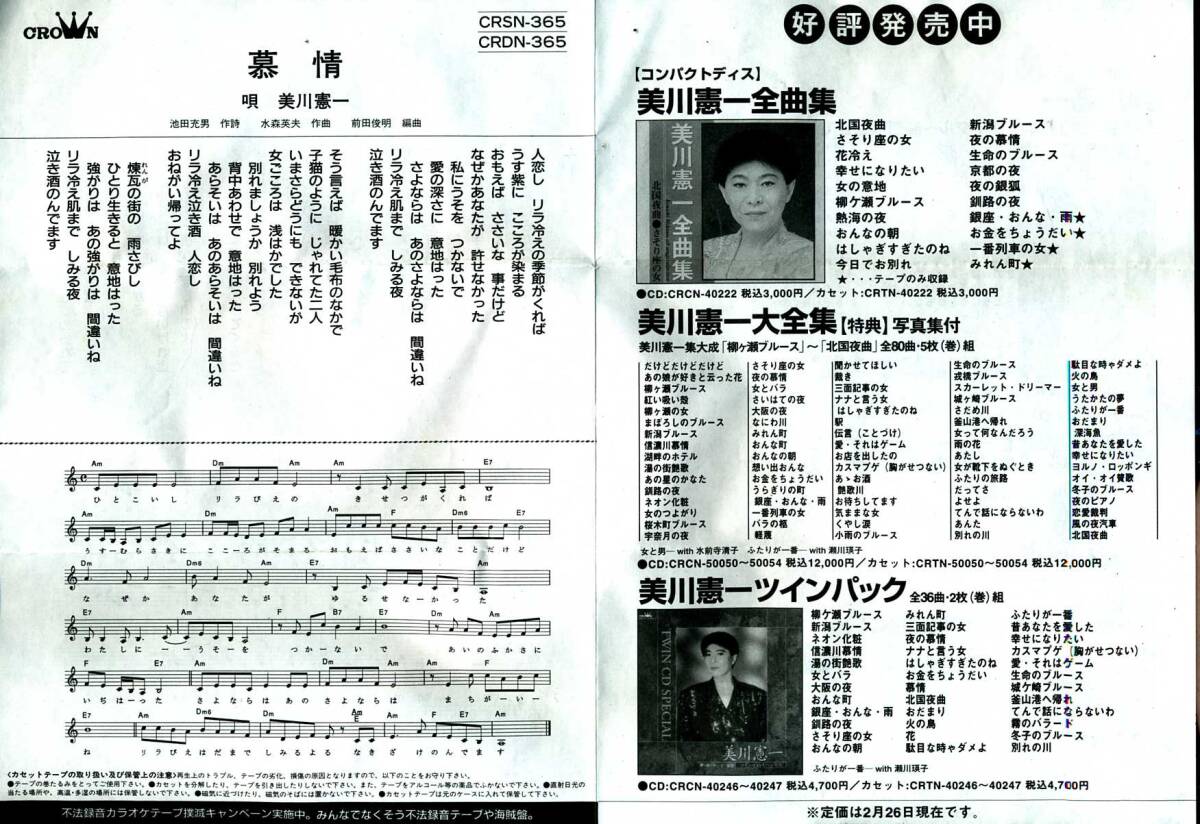 CROWN
CRSN-365
CRDN-365
慕情
唄 美川憲一
池田充男 作詩 水森英夫 作曲 前田俊明 編曲
人恋し リラ冷えの季節がくれば
うす紫に こころが染まる
おもえば ささいな 事だけど
なぜかあなたが 許せなかった
私にうそを つかないで
愛の深さに 意地はった
さよならは あのさよならは 間違いね
リラ冷え肌まで しみる夜
泣き酒のんでます
そう言えば 暖かい毛布のなかで
子猫のように じゃれてた二人
いまさらどうにも できないが
女ごころは 浅はかでした
別れましょうか 別れよう
背中あわせで 意地はった
あらそいは あのあらそいは 間違いね
リラ冷え泣き酒 人恋し
おねがい帰ってよ
煉瓦の街の 雨さびし
れんが
ひとり生きると 意地はった
強がりは あの強がりは 間違いね
リラ冷え肌まで しみる夜
泣き酒のんでます
Am Dm Am Am E7
ひとこいし リラびえの きせつがくれば
Am Am F Dm6 E7
うすーむらさきに こころがそまる おもえばささいな ことだけど
Dm Dm6 Am E7 Am
なぜか あなたが ゆるせなーかった
E7 Am F B7 E7 Am
わたしにーーうそーを つかーないで あいのふかさに
F E7 Am F E7
いちはーった さよならは あのさよならは まちがーいー
Am Dm6 Am F E7 Am
ね リラびえはだまで しみるよる なきざけのんでます
〈カセットテープの取り扱い及び保管上の注意〉再生上のトラブル、テープの劣化、損傷の原因となりますので、以下のことをお守り下さい。
●テープの巻たるみをとってご使用下さい。●カセットを分解したり、テープを引き出したりしないで下さい。また、テープをアルコール等の薬品でふかないで下さい。●直射日光の
当たる場所や、高温・多湿の場所には保管しないで下さい。●磁気に近づけたり、磁気のそばには置かないで下さい。●カセットテープは元のケースに入れて保管して下さい。
不法録音カラオケテープ撲滅キャンペーン実施中。みんなでなくそう不法録音テープや海賊盤。
好評発売中
【コンパクトディス】
美川憲一全曲集
美川憲一全曲集
北国夜曲●さそり座の女
北国夜曲
さそり座の女
花冷え
幸せになりたい
女の意地
柳ケ瀬ブルース
熱海の夜
おんなの朝
はしゃぎすぎたのね
今日でお別れ
新潟ブルース
夜の慕情
生命のブルース
京都の夜
夜の銀狐
釧路の夜
銀座・おんな・雨★
お金をちょうだい★
一番列車の女★
みれん町★
★・・・テープのみ収録
●CD:CRCN-40222 税込3,000円／カセット:CRTN-40222 税込3,000円
美川憲一大全集【特典】写真集付
美川憲一集大成「柳ヶ瀬ブルース」〜「北国夜曲」全80曲・5枚(巻)組
だけどだけどだけど
あの娘が好きと云った花
柳ヶ瀬ブルース
紅い吸い殻
柳ヶ瀬の女
まぼろしのブルース
新潟ブルース
信濃川慕情
湖畔のホテル
湯の街艶歌
あの星のかなた
釧路の夜
ネオン化粧
女のつよがり
桜木町ブルース
宇奈月の夜
さそり座の女
夜の慕情
女とバラ
さいはての夜
大阪の夜
なにわ川
みれん町
おんな町
おんなの朝
想い出おんな
お金をちょうだい
うらぎりの町
銀座・おんな・雨
一番列車の女
バラの柩
軽蔑
聞かせてほしい
裁き
三面記事の女
ナナと言う女
はしゃぎすぎたのね
駅
伝言(ことづけ)
愛・それはゲーム
お店を出したの
カスマプゲ(胸がせつない)
あゝお酒
艶歌川
お待ちしてます
気ままな女
くやし涙
小雨のブルース
生命のブルース
戎橋ブルース
スカーレット・ドリーマー
城ヶ崎ブルース
さだめ川
釜山港へ帰れ
女って何なんだろう
雨の花
あたし
女が靴下をぬぐとき
ふたりの旅路
だってさ
よせよ
てんで話にならないわ
あんた
別れの川
駄目な時ゃダメよ
火の鳥
女と男
うたかたの夢
ふたりが一番
おだまり
深海魚
昔あなたを愛した
幸せになりたい
ヨルノ・ロッポンギ
オイ・オイ賛歌
冬子のブルース
夜のピアノ
恋愛裁判
風の夜汽車
北国夜曲
女と男—with 水前寺清子 ふたりが一番—with 瀬川瑛子
●CD:CRCN-50050〜50054 税込12,000円／カセット:CRTN-50050〜50054 税込12,000円
美川憲一ツインパック 全36曲・2枚(巻)組
TWIN CD SPECIAL
美川憲一
柳ケ瀬ブルース
新潟ブルース
ネオン化粧
信濃川慕情
湯の街艶歌
女とバラ
大阪の夜
おんな町
銀座・おんな・雨
釧路の夜
さそり座の女
おんなの朝
みれん町
三面記事の女
夜の慕情
ナナと言う女
はしゃぎすぎたのね
お金をちょうだい
慕情
北国夜曲
おだまり
火の鳥
花
駄目な時ゃダメよ
ふたりが一番
昔あなたを愛した
幸せになりたい
カスマプゲ(胸がせつない)
愛・それはゲーム
生命のブルース
城ケ崎ブルース
釜山港へ帰れ
てんで話にならないわ
霧のバラード
冬子のブルース
別れの川
ふたりが一番—with 瀬川瑛子
●CD:CRCN-40246〜40247 税込4,700円／カセット:CRTN-40246〜40247 税込4,700円
※定価は2月26日現在です。